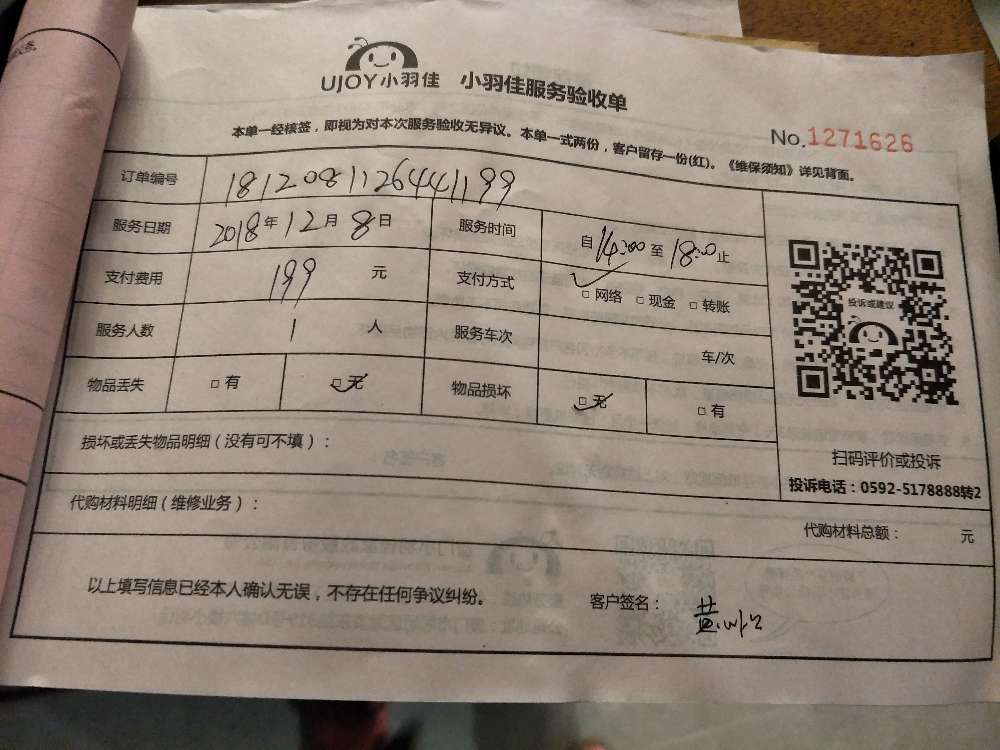 UJOY小羽佳 小羽佳服务验收单
本单一经核签，即视为对本次服务验收无异议。本单一式两份，客户留存一份(红)。《维保须知》详见背面。
No.1271626
订单编号 18120811264441199
服务日期 2018年12月8日 服务时间 自14:00至18:00止
支付费用 199 元 支付方式 □网络 □现金 □转账
服务人数 1 人 服务车次 车/次
物品丢失 □有 □无 物品损坏 □无 □有
投诉或建议
扫码评价或投诉
投诉电话：0592-5178888转2
损坏或丢失物品明细（没有可不填）：
代购材料明细（维修业务）：
代购材料总额： 元
以上填写信息已经本人确认无误，不存在任何争议纠纷。 客户签名： 黄